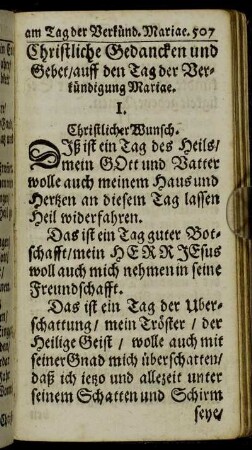 am Tag der Verkünd. Mariae. 507
Christliche Gedancken und
Gebet/auff den Tag der Ver-
kündigung Mariae.
I.
Christlicher Wunsch.
DIß ist ein Tag des Heils/
mein GOtt und Vatter
wolle auch meinem Haus und
Hertzen an diesem Tag lassen
Heil widerfahren.
Das ist ein Tag guter Bot-
schafft/mein HERR JEsus
woll auch mich nehmen in seine
Freundschafft.
Das ist ein Tag der Uber-
schattung/ mein Tröster/ der
Heilige Geist/ wolle auch mit
seiner Gnad mich überschatten/
daß ich ietzo und allezeit unter
seinem Schatten und Schirm
seye/